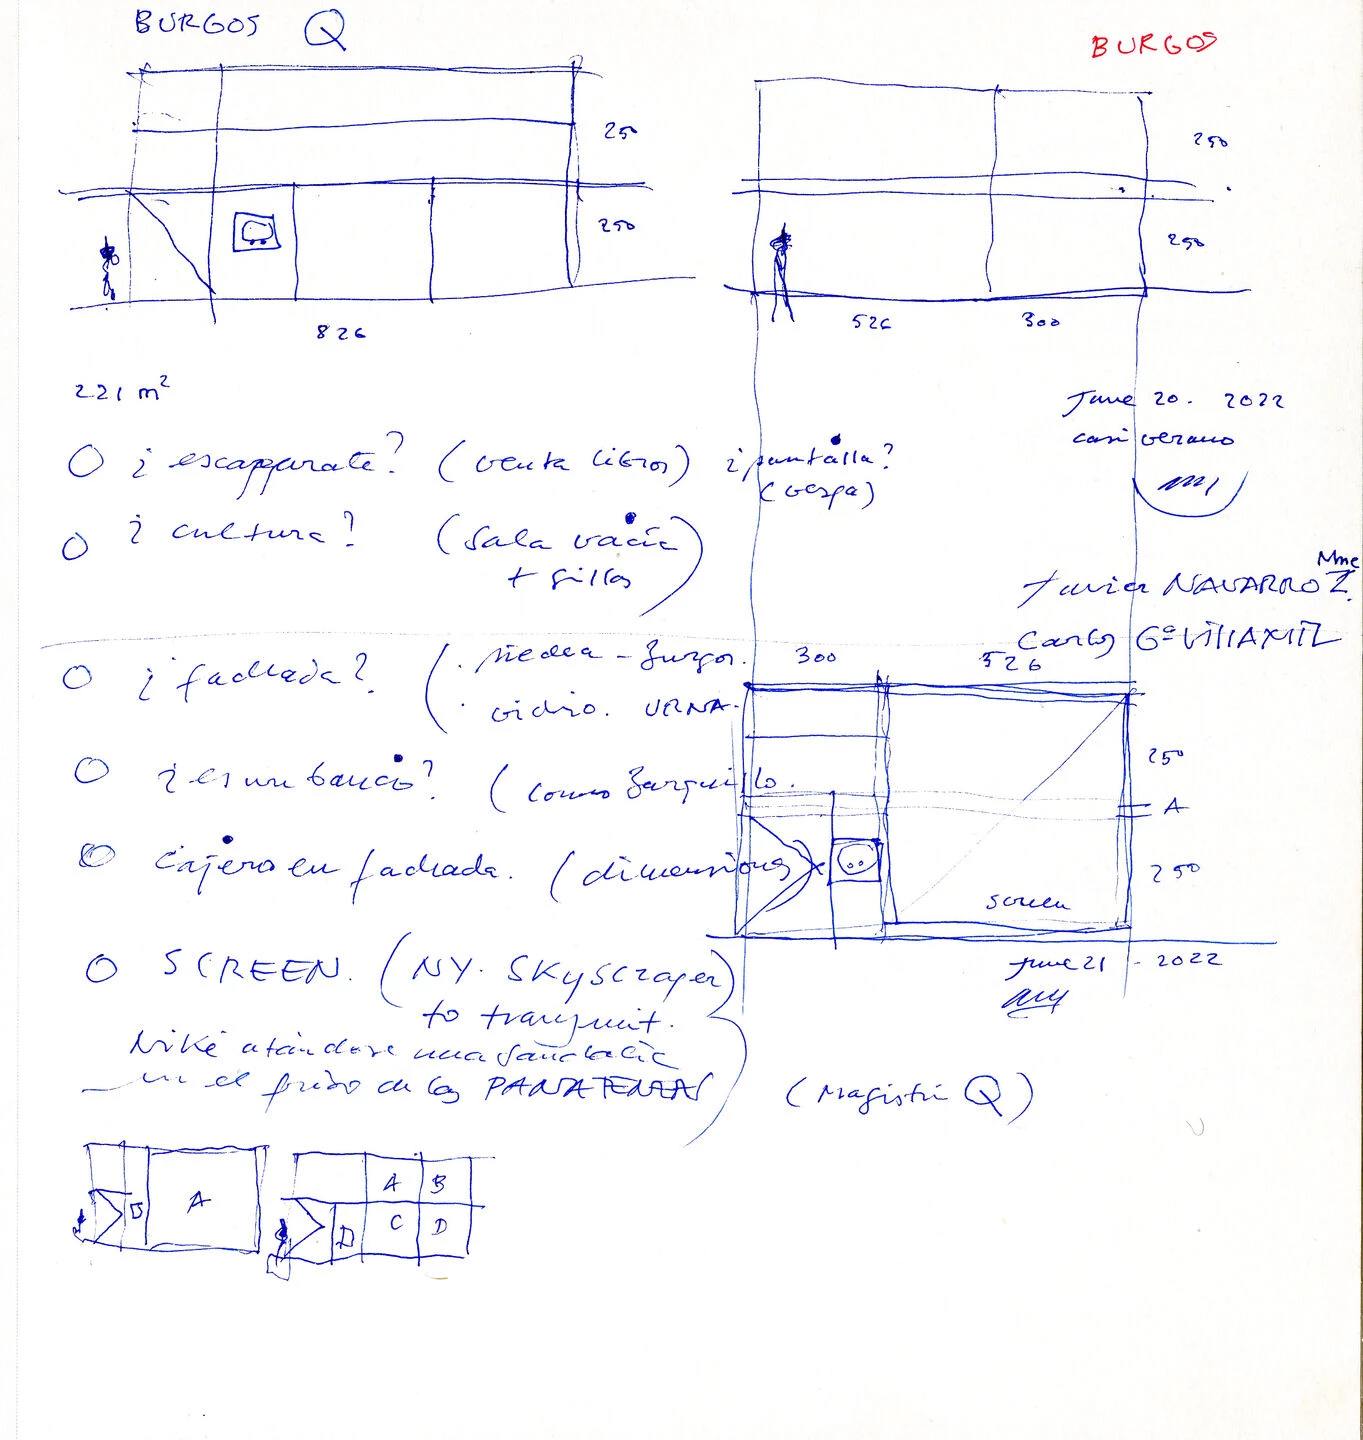 BURGOS Q
BURGOS
250
250
826
250
250
526
300
221 m²
June 20. 2022
casi verano
¿escapparate? (venta libros) ¿pantalla?
(vespa)
¿cultura? (sala vacía
+ sillas)
Mme
Javier NAVARRO Z.
Carlos Gª VILLAMIL
300
526
¿fachada? (. piedra - Burgos.
. vidrio. URNA.
¿es un banco? (como Barquillo.
Cajero en fachada. (dimensions)
250
A
250
screen
SCREEN. (NY. SKYSCRAPER)
to transmit.
June 21 - 2022
Niké atándose una sandalia
en el friso de las PANATENEAS)
(Magistri Q)
A
A B
C D